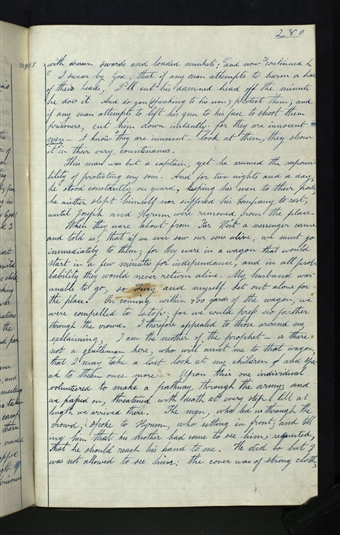 280
with drawn swords and loaded muskets; "and now" continued he
"I swear by God, that if any man attempts to harm a hair
of their heads, I'll cut his damned head off the minute
he does it. And do you (speaking to his men) protect them, and
if any man attempts to lift his gun to his face to shoot them
prisoners, cut him down instantly: for they are innocent
men— I know they are innocent— look at them, they show
it in their very countenance.
This man was but a captain, yet he assumed the responsi-
bility of protecting my sons. And for two nights and a day,
he stood constantly on guard, keeping his men to their posts;
he neither slept himself nor suffered his company to rest,
until Joseph and Hyrum were removed from the place.
When they were about from Far West a messenger came
and told us, that if we ever saw our sons alive, we must go
immediately to them; for they were in a wagon that would
start in a few minutes for independance, and in all pro-
bability they would never return alive. My husband was
unable to go, so Lucy and myself set out alone for
the place. On coming within 400 yards of the wagon, we
were compelled to stop; for we could press no farther
through the crowd. I therefore appealed to those around me
exclaiming, I am the mother of the prophet— is there
not a gentleman here, who will assist me to that wagon,
that I may take a last look at my children & speak
to them once more. Upon this one individual
volunteered to make a pathway through the army; and
we passed on, threatened with death at every step till at
length we arrived there. The man, who led us through the
crowd, spoke to Hyrum, who setting in front; and tell
ing him that his mother had come to see him requested,
that he should reach his hand to me. He did so but I
was not allowed to see him: the cover was of strong cloth,